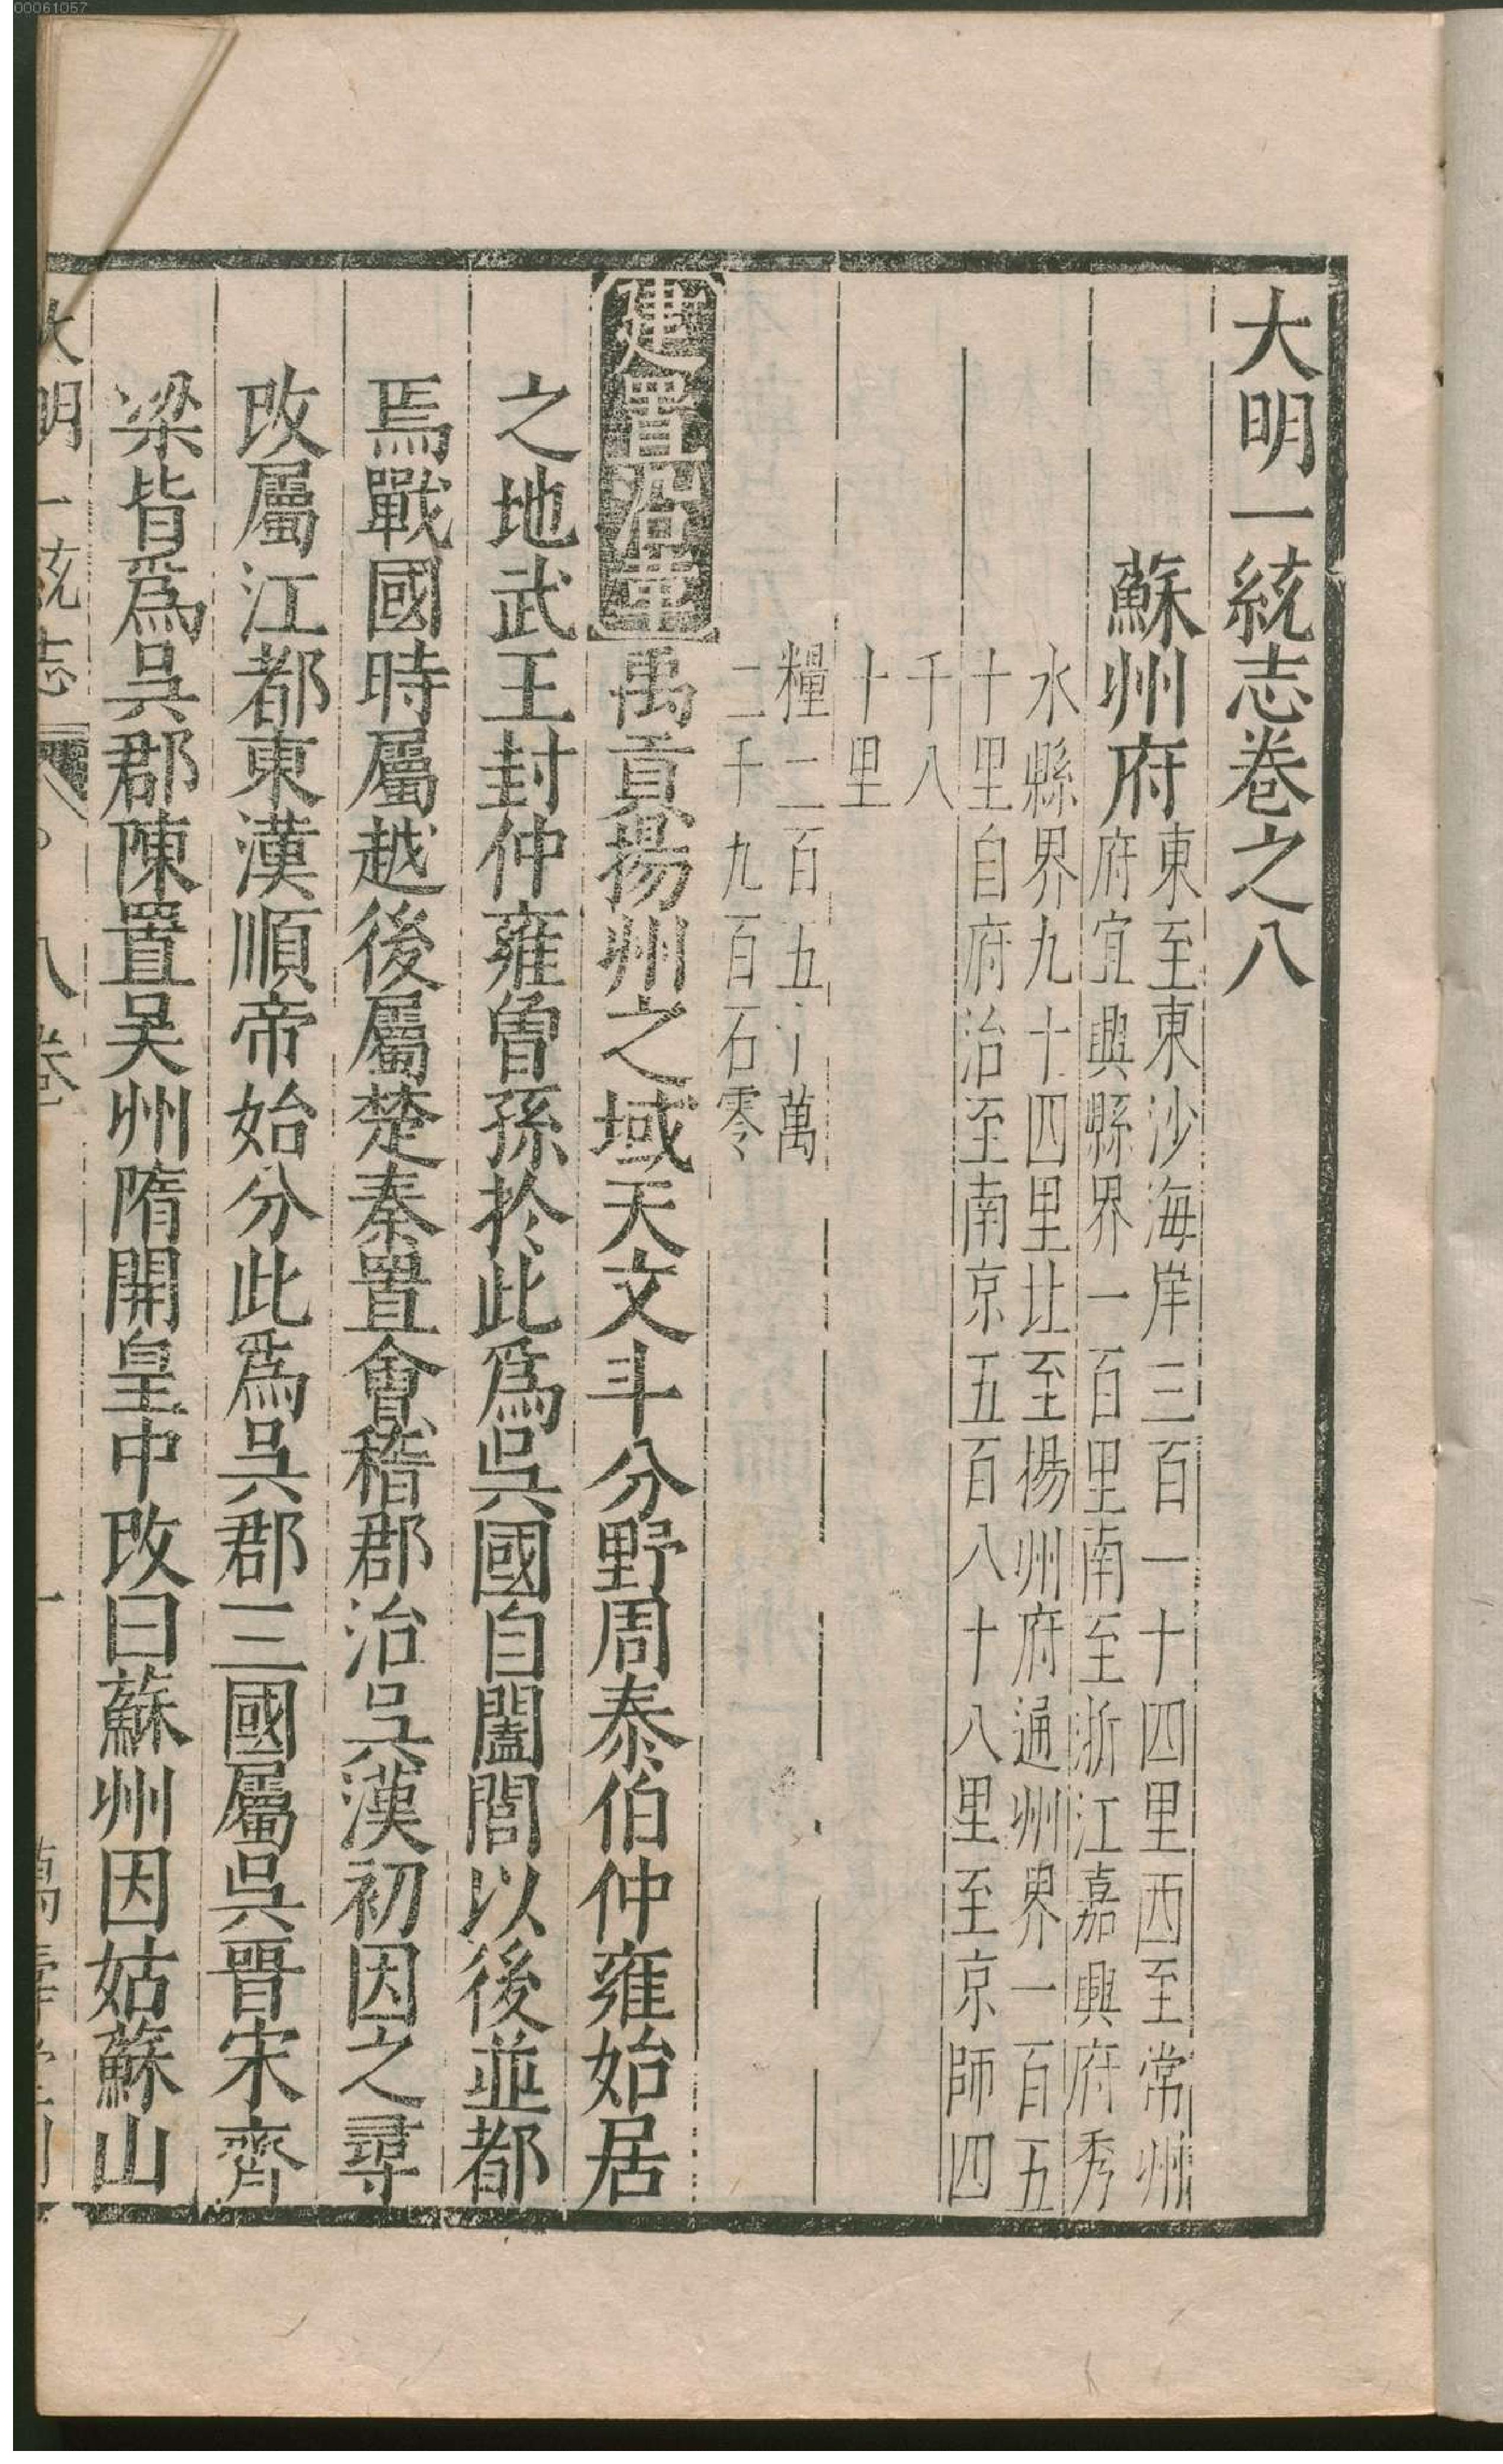 大明一統志卷之八
蘇州府
東至東沙海岸三百一十四里西至常州
府宜興縣界一百里南至浙江嘉興府秀
水縣界九十四里北至揚州府通州界一百五
十里自府治至南京五百八十八里至京師四
千八
十里
糧二百五十萬
二千九百石零
建置沿革
禹貢揚州之域天文斗分野周泰伯仲雍始居
之地武王封仲雍曾孫於此爲吳國自闔閭以後並都
焉戰國時屬越後屬楚秦置會稽郡治吳漢初因之尋
改屬江都東漢順帝始分此爲吳郡三國屬吳晉宋齊
梁皆爲吳郡陳置吴州隋開皇中改曰蘇州因姑蘇山
大明一統志 八卷 一
00061057